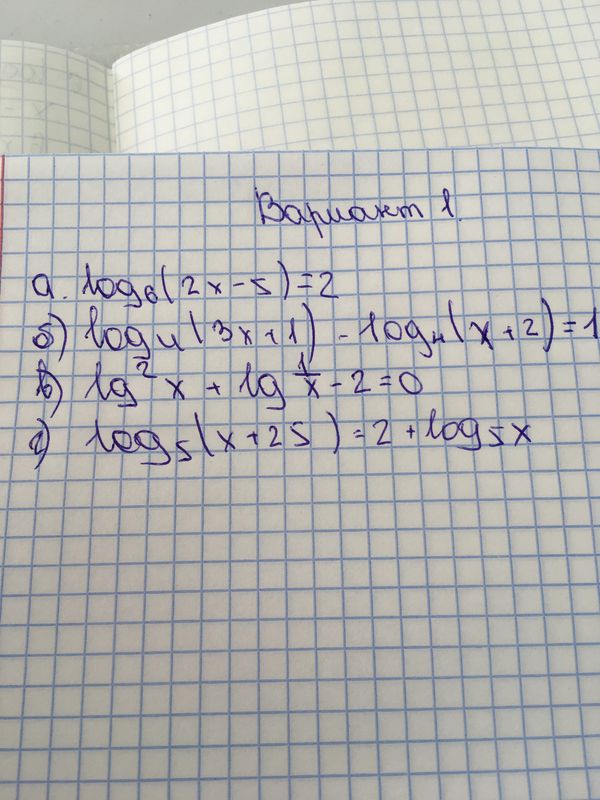 Вариант 1.
а. log₆(2x-5)=2
б) log₄(3x+1)-log₄(x+2)=1
в) lg²x+lg 1/x-2=0
г) log₅(x+25)=2+log₅x